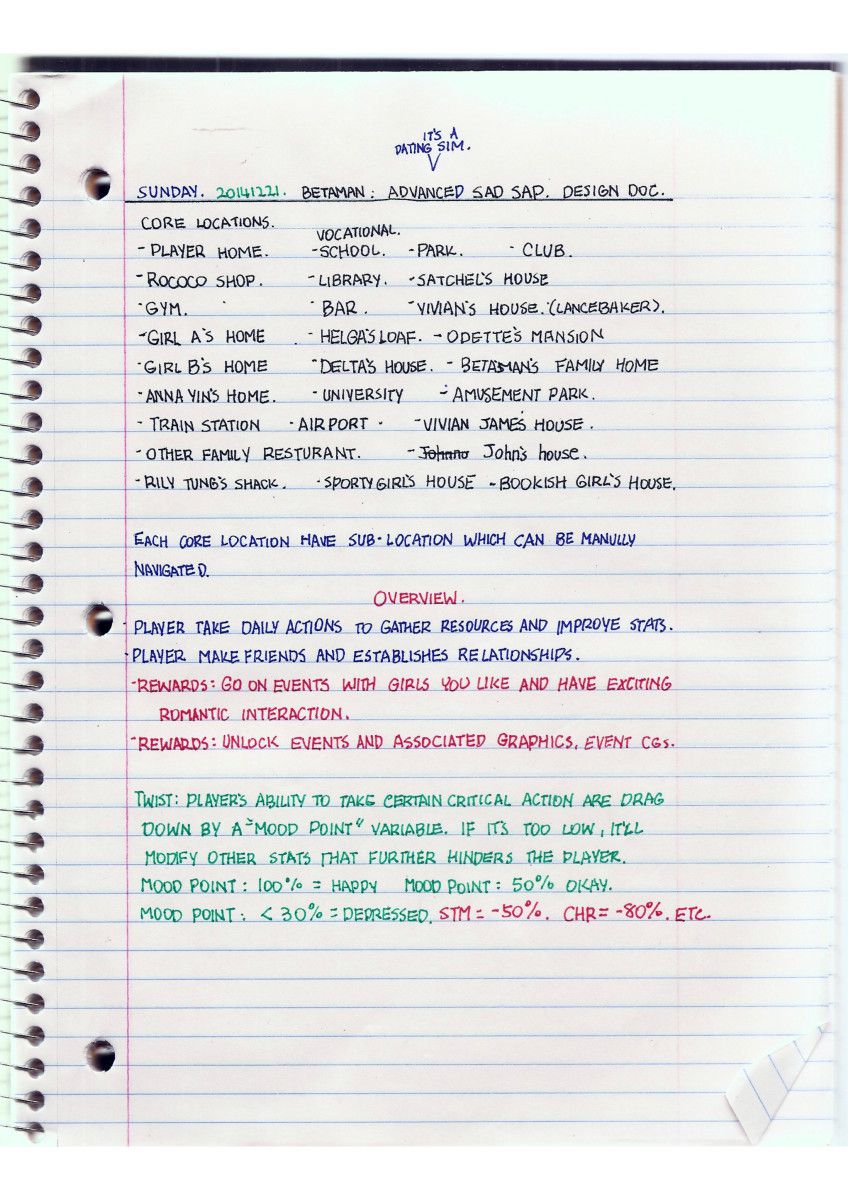 IT'S A
DATING SIM.
SUNDAY. 20141221. BETAMAN: ADVANCED SAD SAP. DESIGN DOC.
CORE LOCATIONS.
VOCATIONAL.
- PLAYER HOME. - SCHOOL. - PARK. - CLUB.
- ROCOCO SHOP. - LIBRARY. - SATCHEL'S HOUSE
- GYM. - BAR. - VIVIAN'S HOUSE. (LANCEBAKER).
- GIRL A'S HOME - HELGA'S LOAF. - ODETTE'S MANSION
- GIRL B'S HOME - DELTA'S HOUSE. - BETAMAN'S FAMILY HOME
- ANNA YIN'S HOME. - UNIVERSITY - AMUSEMENT PARK.
- TRAIN STATION - AIRPORT - - VIVIAN JAMES HOUSE.
- OTHER FAMILY RESTURANT. - John's house.
- RILY TUNG'S SHACK. - SPORTY GIRL'S HOUSE - BOOKISH GIRL'S HOUSE.
EACH CORE LOCATION HAVE SUB-LOCATION WHICH CAN BE MANULLY
NAVIGATED.
OVERVIEW.
- PLAYER TAKE DAILY ACTIONS TO GATHER RESOURCES AND IMPROVE STATS.
- PLAYER MAKE FRIENDS AND ESTABLISHES RELATIONSHIPS.
- REWARDS: GO ON EVENTS WITH GIRLS YOU LIKE AND HAVE EXCITING
ROMANTIC INTERACTION.
- REWARDS: UNLOCK EVENTS AND ASSOCIATED GRAPHICS, EVENT CGs.
TWIST: PLAYER'S ABILITY TO TAKE CERTAIN CRITICAL ACTION ARE DRAG
DOWN BY A "MOOD POINT" VARIABLE. IF IT'S TOO LOW, IT'LL
MODIFY OTHER STATS THAT FURTHER HINDERS THE PLAYER.
MOOD POINT: 100% = HAPPY MOOD POINT: 50% OKAY.
MOOD POINT: < 30% = DEPRESSED. STM = -50%. CHR = -80%. ETC.